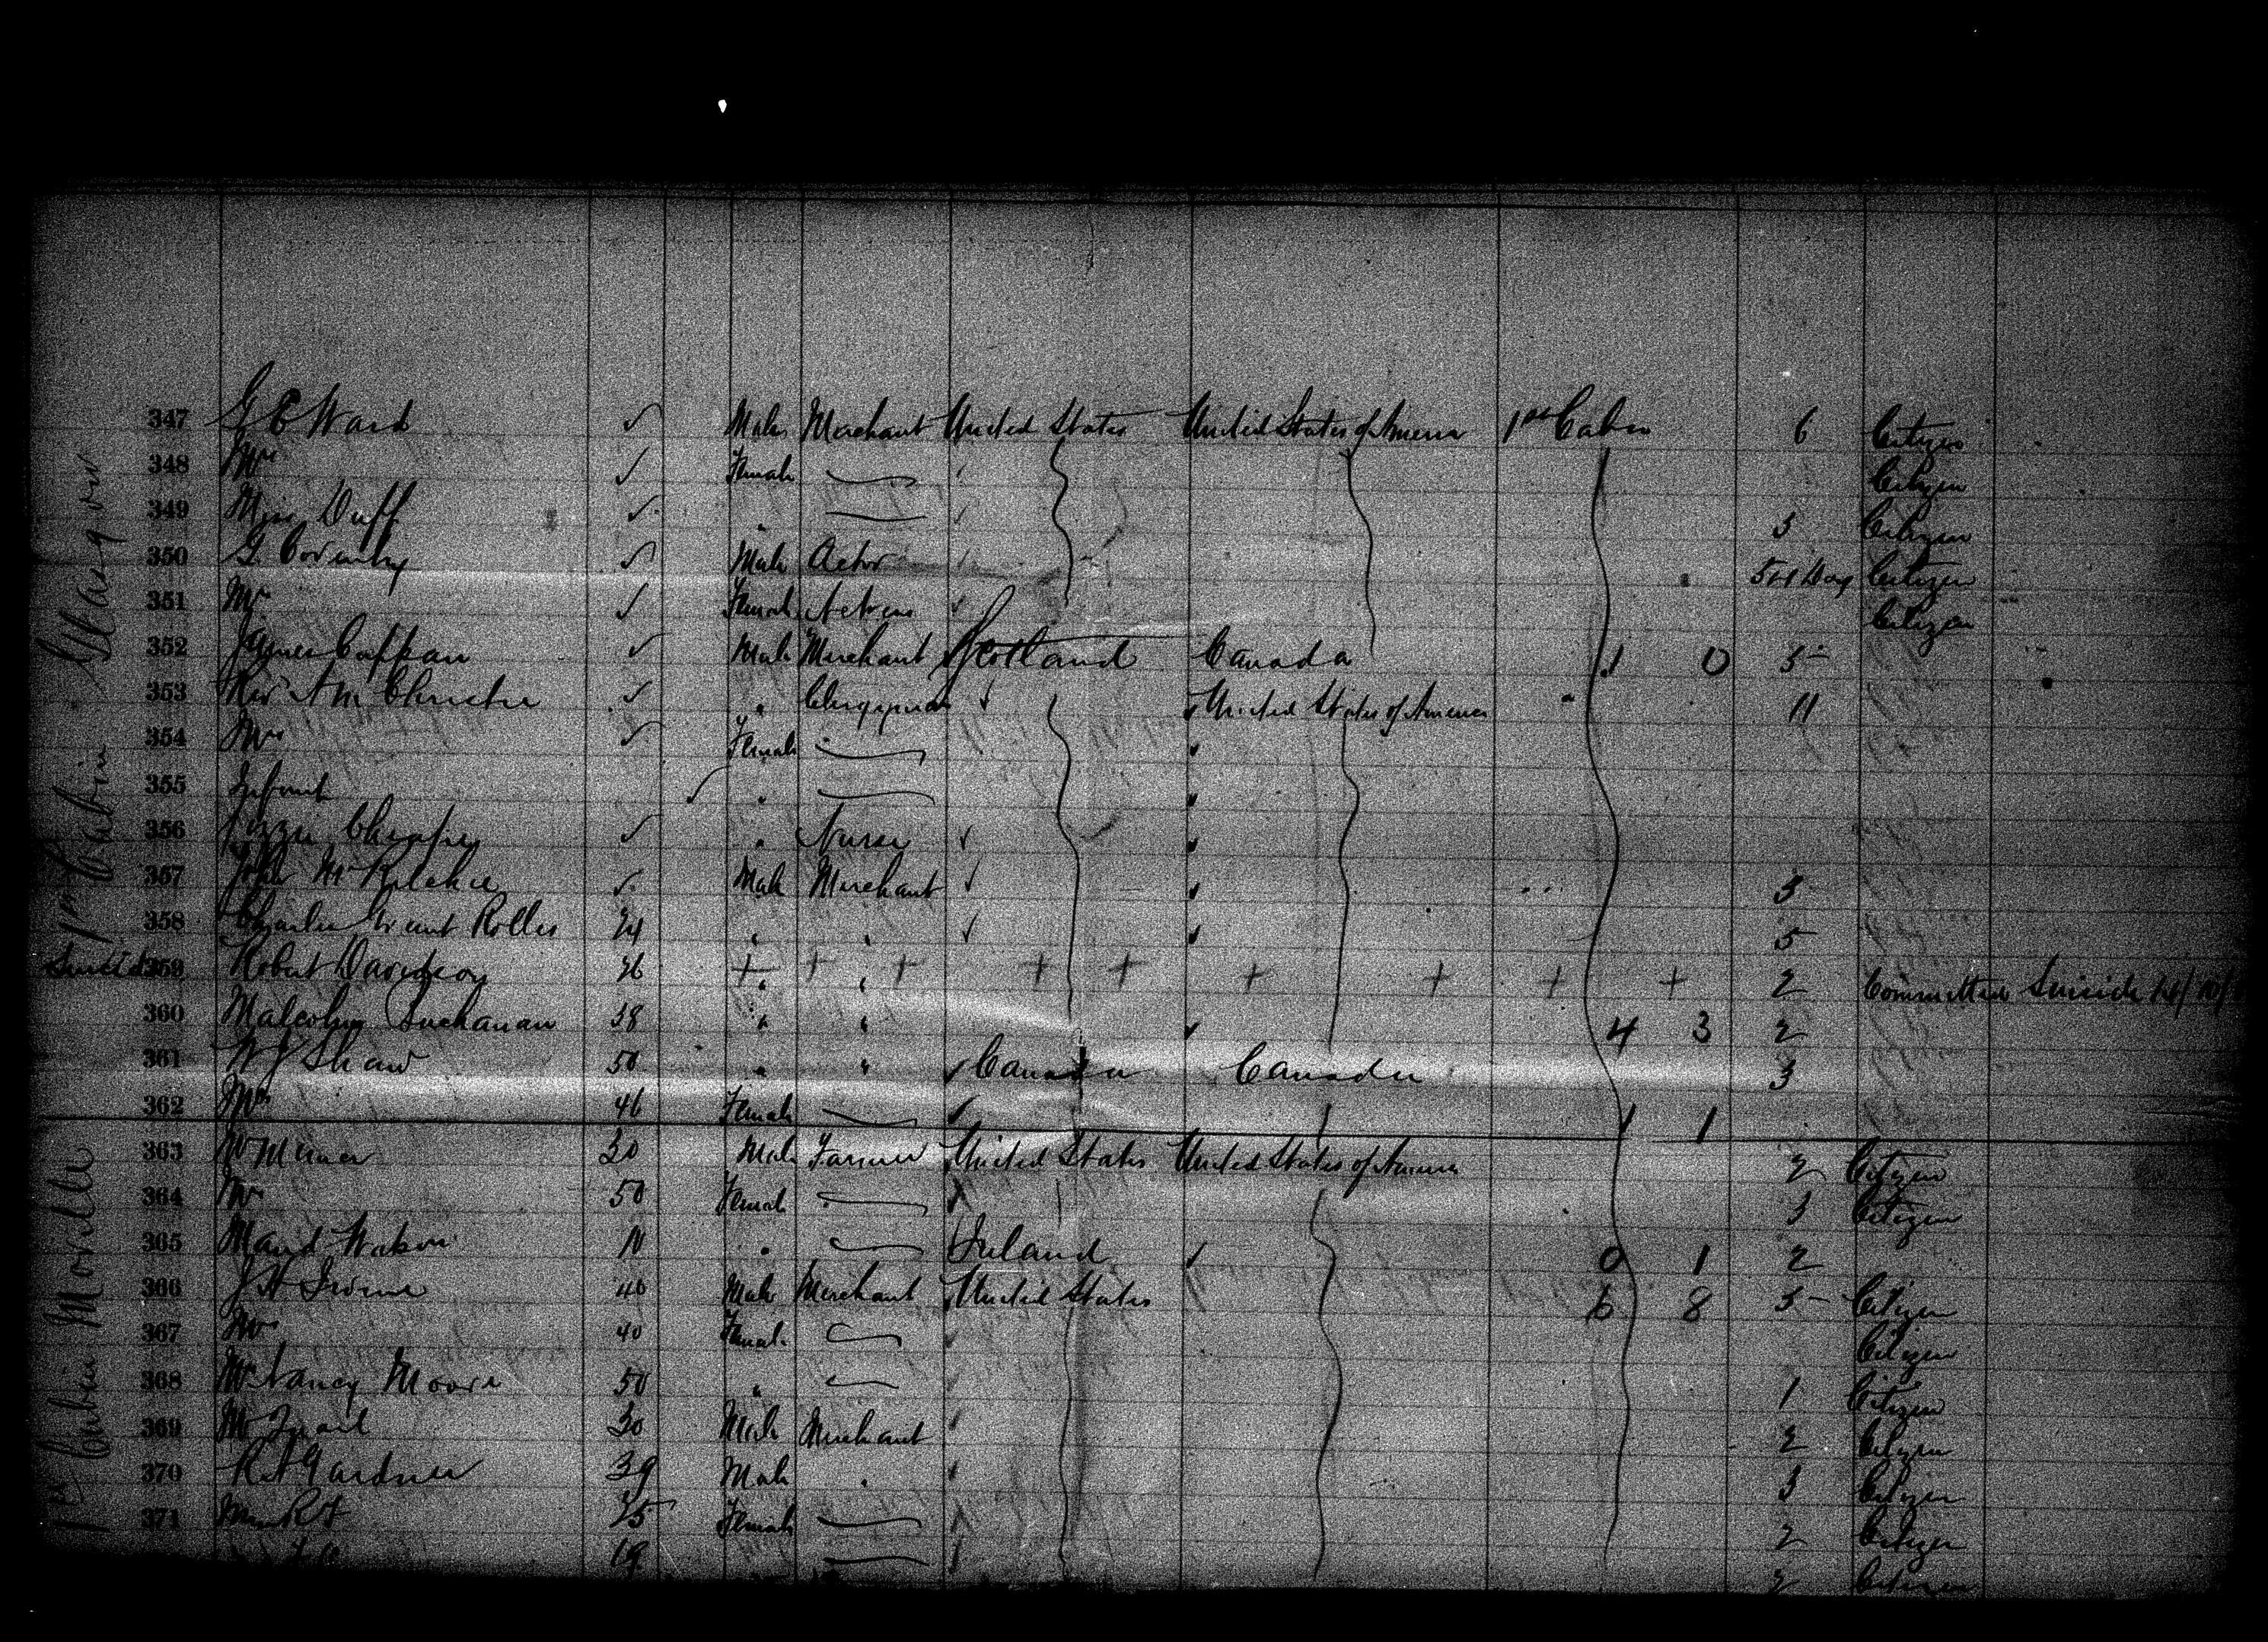 347 G E Ward Male Merchant United States United States of America 1st Cabin 6 Citizen
348 Mrs Female Citizen
349 Miss Duff " 3 Citizen
350 G. Male Actor Citizen
351 Mrs Female Actress Citizen
352 James Male Merchant Scotland Canada 1 0 5
353 Rev A M Christie " Clergyman United States of America 11
354 Mrs Female
355 Infant "
356 Lizzie " Nurse
357 John Male Merchant 3
358 Charles Grant Rolles 24 " " 5
Suicide 359 Robert Davidson 26 + + + + + + + + + 2 Committed Suicide
360 Malcolm Buchanan 38 " " 4 3 2
361 W J Shaw 50 " " Canada Canada 3
362 Mrs 46 Female 1 1
363 30 Male Farmer United States United States of America 2 Citizen
364 Mrs 50 Female 3 Citizen
365 Maud " Ireland 0 1 2
366 J H Irvine 40 Male Merchant United States 6 8 5 Citizen
367 Mrs 40 Female Citizen
368 Mrs Nancy Moore 50 " 1 Citizen
369 30 Male Merchant 2 Citizen
370 R A Gardner 39 Male " 3 Citizen
371 Female 2 Citizen
19 2 Citizen
1st Cabin Glasgow
1st Cabin Moville